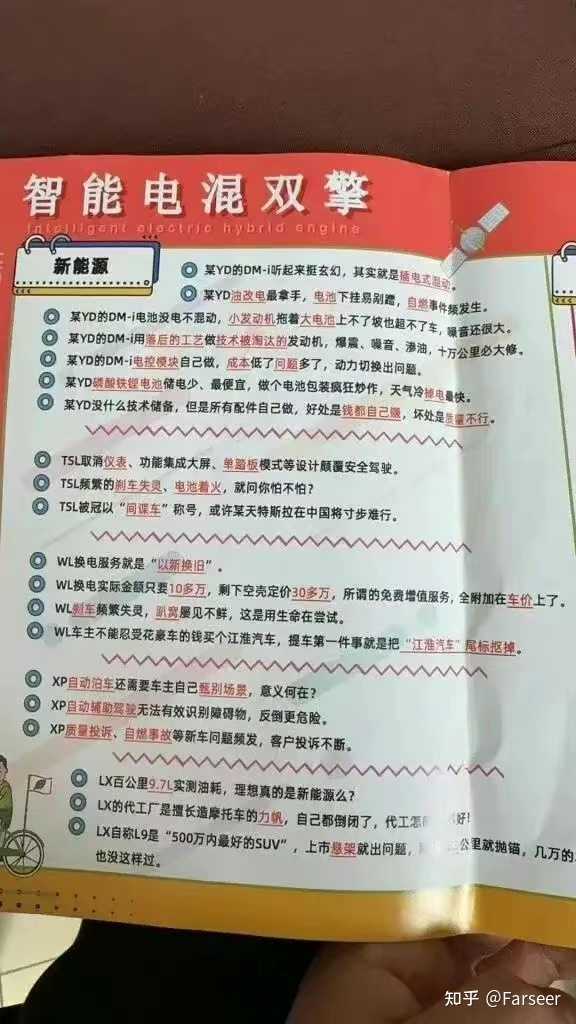 智能电混双擎
Intelligent electric hybrid engine
新能源
某YD的DM-i听起来挺玄幻，其实就是插电式混动。
某YD油改电最拿手，电池下挂易剐蹭，自燃事件频发生。
某YD的DM-i电池没电不混动，小发动机拖着大电池上不了坡也超不了车，噪音还很大。
某YD的DM-i用落后的工艺做技术被淘汰的发动机，爆震、噪音、渗油，十万公里必大修。
某YD的DM-i电控模块自己做，成本低了问题多了，动力切换出问题。
某YD磷酸铁锂电池储电少、最便宜，做个电池包装疯狂炒作，天气冷掉电最快。
某YD没什么技术储备，但是所有配件自己做，好处是钱都自己赚，坏处是质量不行。
TSL取消仪表、功能集成大屏、单踏板模式等设计颠覆安全驾驶。
TSL频繁的刹车失灵、电池着火，就问你怕不怕？
TSL被冠以“间谍车”称号，或许某天特斯拉在中国将寸步难行。
WL换电服务就是“以新换旧”。
WL换电实际金额只要10多万，剩下空壳定价30多万，所谓的免费增值服务，全附加在车价上了。
WL刹车频繁失灵，趴窝屡见不鲜，这是用生命在尝试。
WL车主不能忍受花豪车的钱买个江淮汽车，提车第一件事就是把“江淮汽车”尾标抠掉。
XP自动泊车还需要车主自己甄别场景，意义何在？
XP自动辅助驾驶无法有效识别障碍物，反倒更危险。
XP质量投诉、自燃事故等新车问题频发，客户投诉不断。
LX百公里9.7L实测油耗，理想真的是新能源么？
LX的代工厂是擅长造摩托车的力帆，自己都倒闭了，代工怎 好！
LX自称L9是“500万内最好的SUV”，上市悬架就出问题， 公里就抛锚，几万的
也没这样过。
知乎 @Farseer